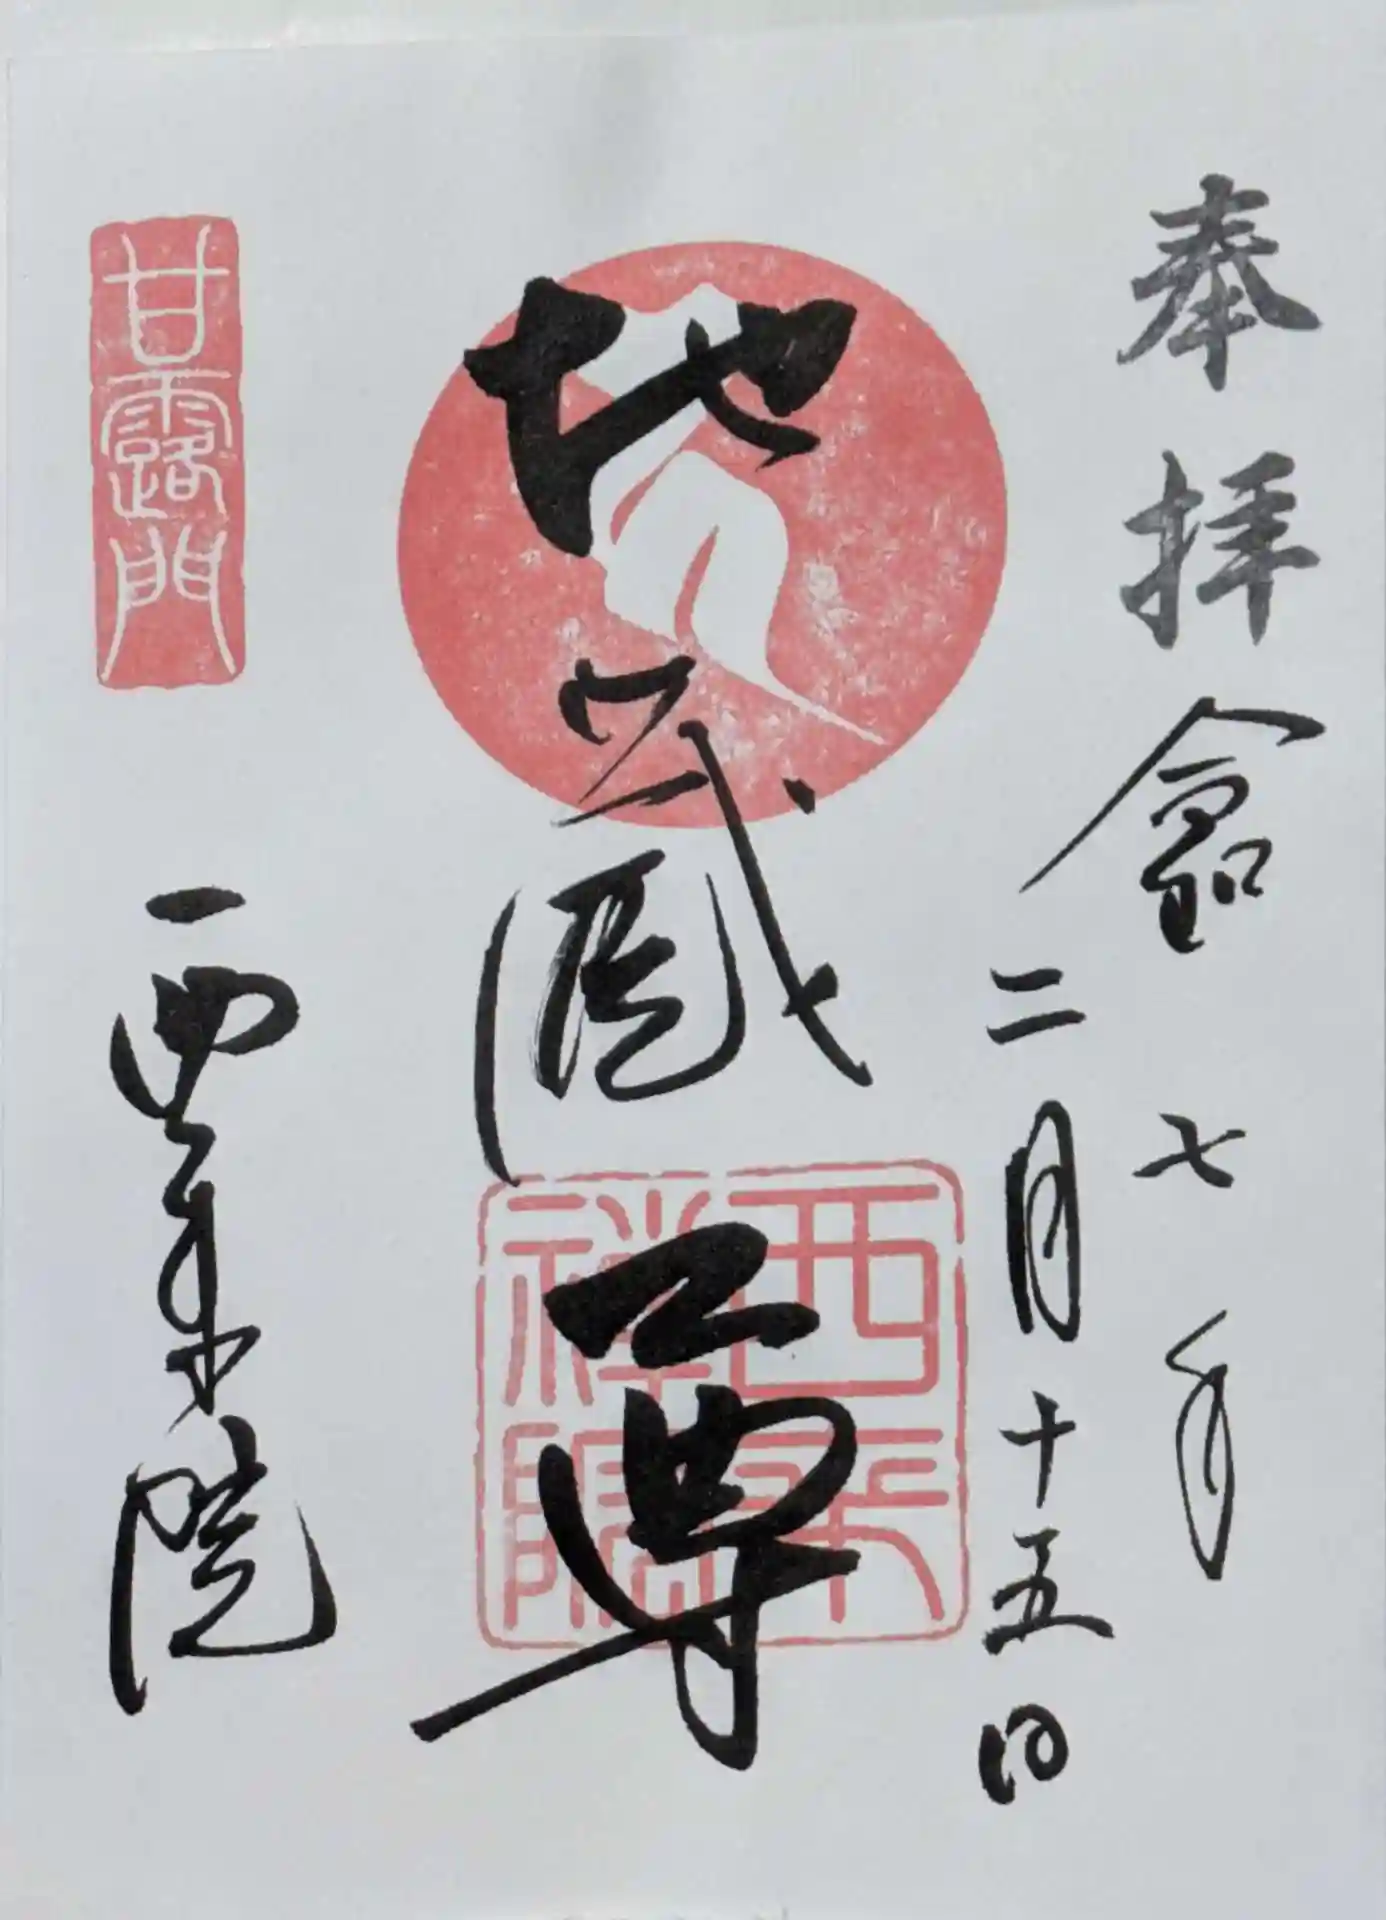 奉拝
令和七年
二月十五日
地蔵尊
西来禅院
甘露門
西来院